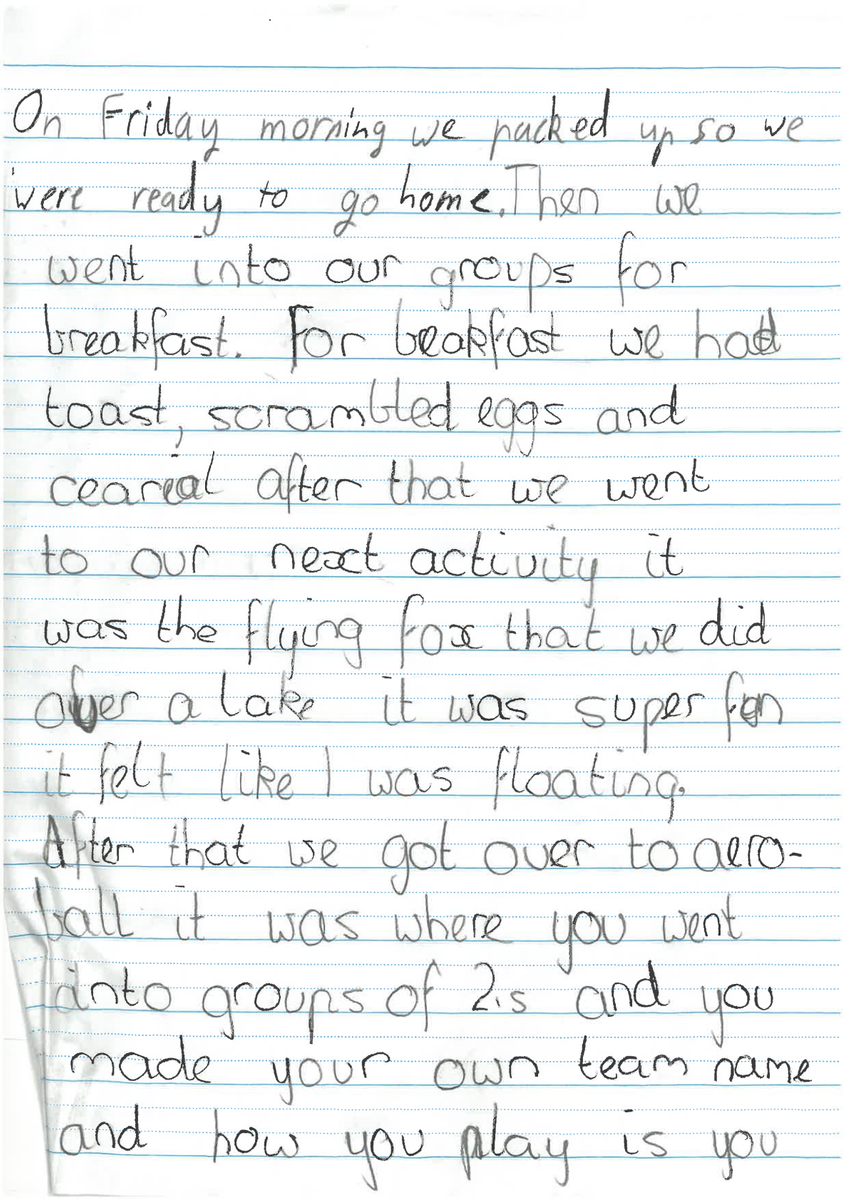 On Friday morning we packed up so we
were ready to go home. Then we
went into our groups for
breakfast. For beakfast we had
toast, scrambled eggs and
cearial after that we went
to our next activity it
was the flying fox that we did
over a lake it was super fun
it felt like I was floating.
After that we got over to aero-
ball it was where you went
into groups of 2.s and you
made your own team name
and how you play is you